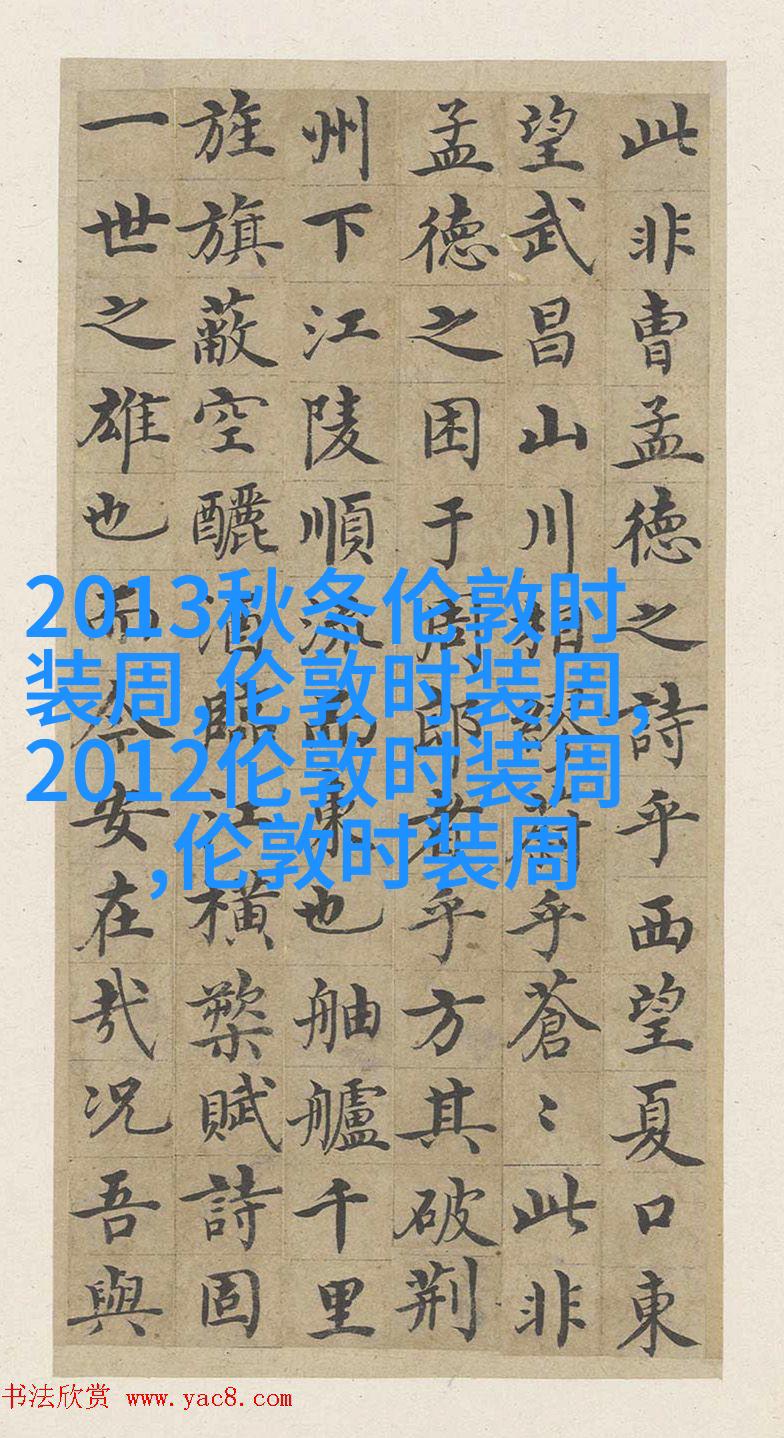 此非曹孟德之詩乎西望夏口東
望武昌山川相繆乎蒼〻此非
孟德之困于周郎者乎方其破荊
州下江陵順流而東也舳艫千里
旌旗蔽空釃酒臨江横槊賦詩固
一世之雄也而今安在哉況吾與
2013秋冬伦敦时
装周,伦敦时装周,
2012伦敦时装周
,伦敦时装周
书法欣赏 www.yac8.com